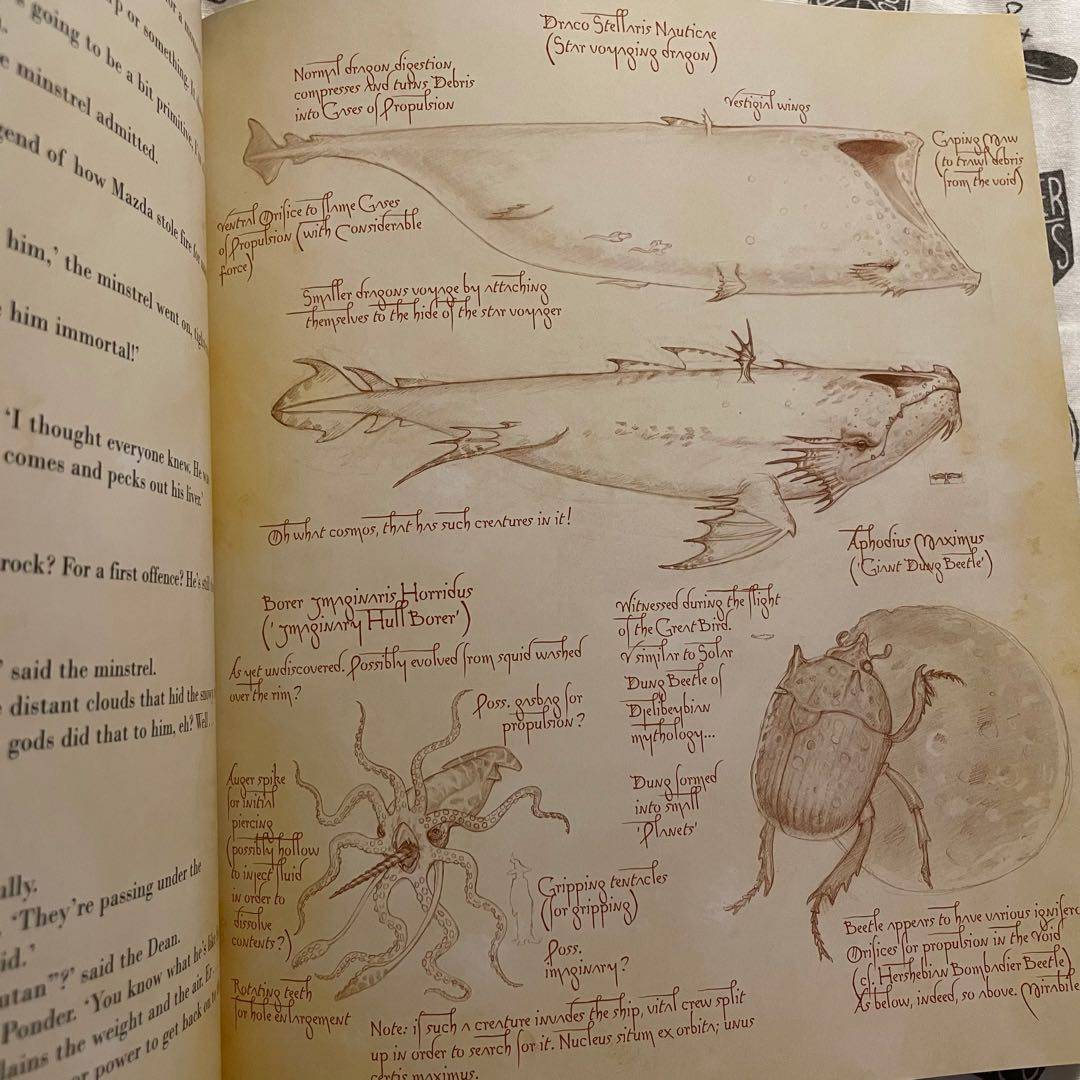 or a mom
p or something
s going to be a bit primitive,
e minstrel admitted.
gend of how Mazda stole fire for
him,' the minstrel went on,
him immortal!'
'I thought everyone knew. He was
comes and pecks out his liver.'
rock? For a first offence? He's still
said the minstrel.
distant clouds that hid the snowy
gods did that to him, eh? Well...
ally.
'They're passing under the
id.'
utan"?' said the Dean.
Ponder. 'You know what he's like
lains the weight and the air. Er,
or power to get back on to
Draco Stellaris Nauticae
(Star voyaging dragon)
Normal dragon digestion,
compresses and turns Debris
into Gases of Propulsion
Vestigial wings
Gaping Maw
(to trawl debris
from the void)
Ventral Orifice to flame Gases
of Propulsion (with Considerable
force)
Smaller dragons voyage by attaching
themselves to the hide of the star voyager
Oh what cosmos, that has such creatures in it!
Aphodius Maximus
('Giant Dung Beetle')
Borer Imaginaris Horridus
('Imaginary Hull Borer')
Witnessed during the flight
of the Great Bird.
V similar to Solar
Dung Beetle of
Djelibeybian
mythology...
As yet undiscovered. Possibly evolved from squid washed
over the rim?
Poss. gasbag for
propulsion?
Auger spike
for initial
piercing
possibly hollow
to inject fluid
in order to
dissolve
contents?)
Dung formed
into small
'Planets'
Gripping tentacles
(for gripping)
Poss.
imaginary?
Rotating teeth
for hole enlargement
Beetle appears to have various ignifero
Orifices for propulsion in the Void
(cf. Hershebian Bombadier Beetle)
As below, indeed, so above. Mirabile
Note: if such a creature invades the ship, vital crew split
up in order to search for it. Nucleus situm ex orbita; unus
certis maximus.